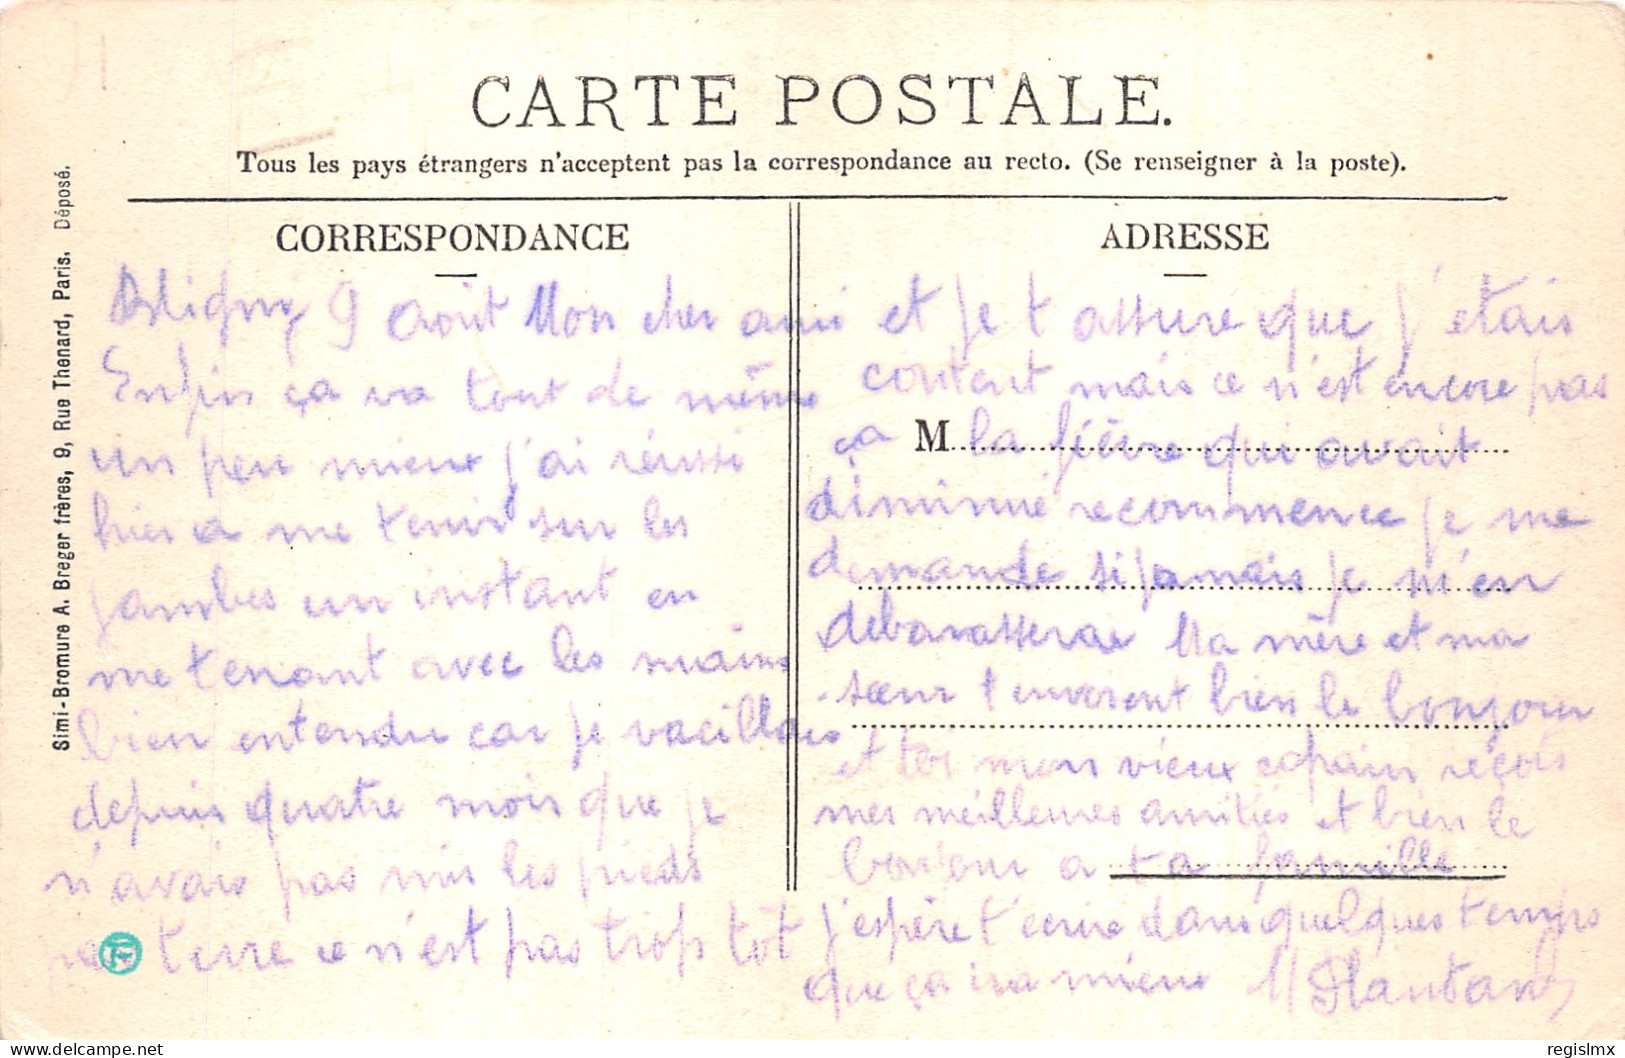 CARTE POSTALE.
Tous les pays étrangers n'acceptent pas la correspondance au recto. (Se renseigner à la poste).
CORRESPONDANCE
9 août Mon cher ami
Enfin ça va tout de même
un peu mieux j'ai réussi
hier a me tenir sur les
jambes un instant en
me tenant avec les mains
bien entendu car je vacillais
depuis quatre mois que je
n'avais pas mis les pieds
terre ce n'est pas trop tôt
ADRESSE
et je t assure que j'étais
content mais ce n'est encore pas
ça M la fièvre qui avait
diminué recommence je me
demande si jamais je m'en
debarasserai Ma mère et ma
sœur t envoient bien le bonjour
et toi mon vieux copain reçois
mes meilleures amitiés et bien le
bonjour a ta famille
j'espère t'ecrire dans quelques temps
que ça ira mieux
Simi-Bromure A. Breger frères, 9, Rue Thenard, Paris. Déposé.
delcampe.net
regislmx